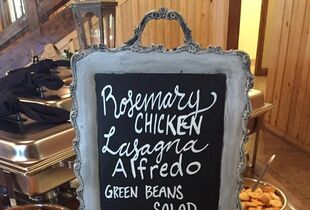 Rosemary
CHICKEN
Lasagna
Alfredo
GREEN BEANS
SALAD